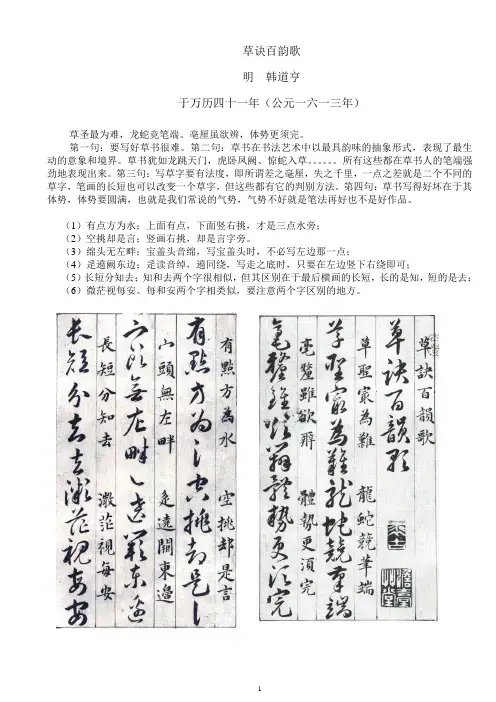 草诀百韵歌
明 韩道亨
于万历四十一年（公元一六一三年）
草圣最为难，龙蛇竞笔端。毫厘虽欲辨，体势更须完。
第一句：要写好草书很难。第二句：草书在书法艺术中以最具韵味的抽象形式，表现了最生
动的意象和境界。草书犹如龙跳天门，虎卧凤阙、惊蛇入草。。。。。。所有这些都在草书人的笔端强
劲地表现出来。第三句：写草字要有法度，即所谓差之毫厘，失之千里，一点之差就是二个不同的
草字，笔画的长短也可以改变一个草字，但这些都有它的判别方法。第四句：草书写得好坏在于其
体势，体势要圆满，也就是我们常说的气势，气势不好就是笔法再好也不是好作品。
（1）有点方为水：上面有点，下面竖右挑，才是三点水旁；
（2）空挑却是言：竖画右挑，却是言字旁。
（3）绵头无左畔：宝盖头音绵，写宝盖头时，不必写左边那一点；
（4）辵遶阙东边：辵读音绰，遶同绕，写走之底时，只要在左边竖下右绕即可；
（5）长短分知去：知和去两个字很相似，但其区别在于最后横画的长短，长的是知，短的是去；
（6）微茫视每安。每和安两个字相类似，要注意两个字区别的地方。
草訣百韻歌
草訣百韻歌
草聖最為難 龍蛇競筆端
草聖最為難龍蛇競筆端
毫釐雖欲辨 體勢更須完
毫釐雖欲辨體勢更須完
有點方為水 空挑却是言
有點方為氵空挑却是訁
宀頭無左畔 辵遶闕東邊
宀頭無左畔辶遶闕東邊
長短分知去 微茫視每安
長短分知去微茫視每安
1